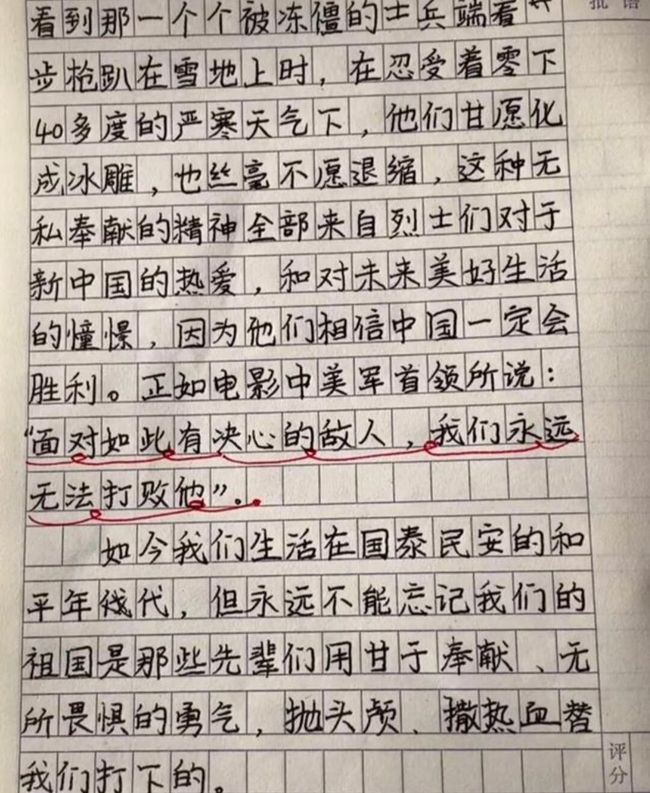 看到那一个个被冻僵的士兵端着
批语
步枪趴在雪地上时，在忍受着零下
40多度的严寒天气下，他们甘愿化
成冰雕，也丝毫不愿退缩，这种无
私奉献的精神全部来自烈士们对于
新中国的热爱，和对未来美好生活
的憧憬，因为他们相信中国一定会
胜利。正如电影中美军首领所说：
“面对如此有决心的敌人，我们永远
无法打败他”。
如今我们生活在国泰民安的和
平年代，但永远不能忘记我们的
祖国是那些先辈们用甘于奉献、无
所畏惧的勇气，抛头颅、撒热血替
我们打下的。
评分